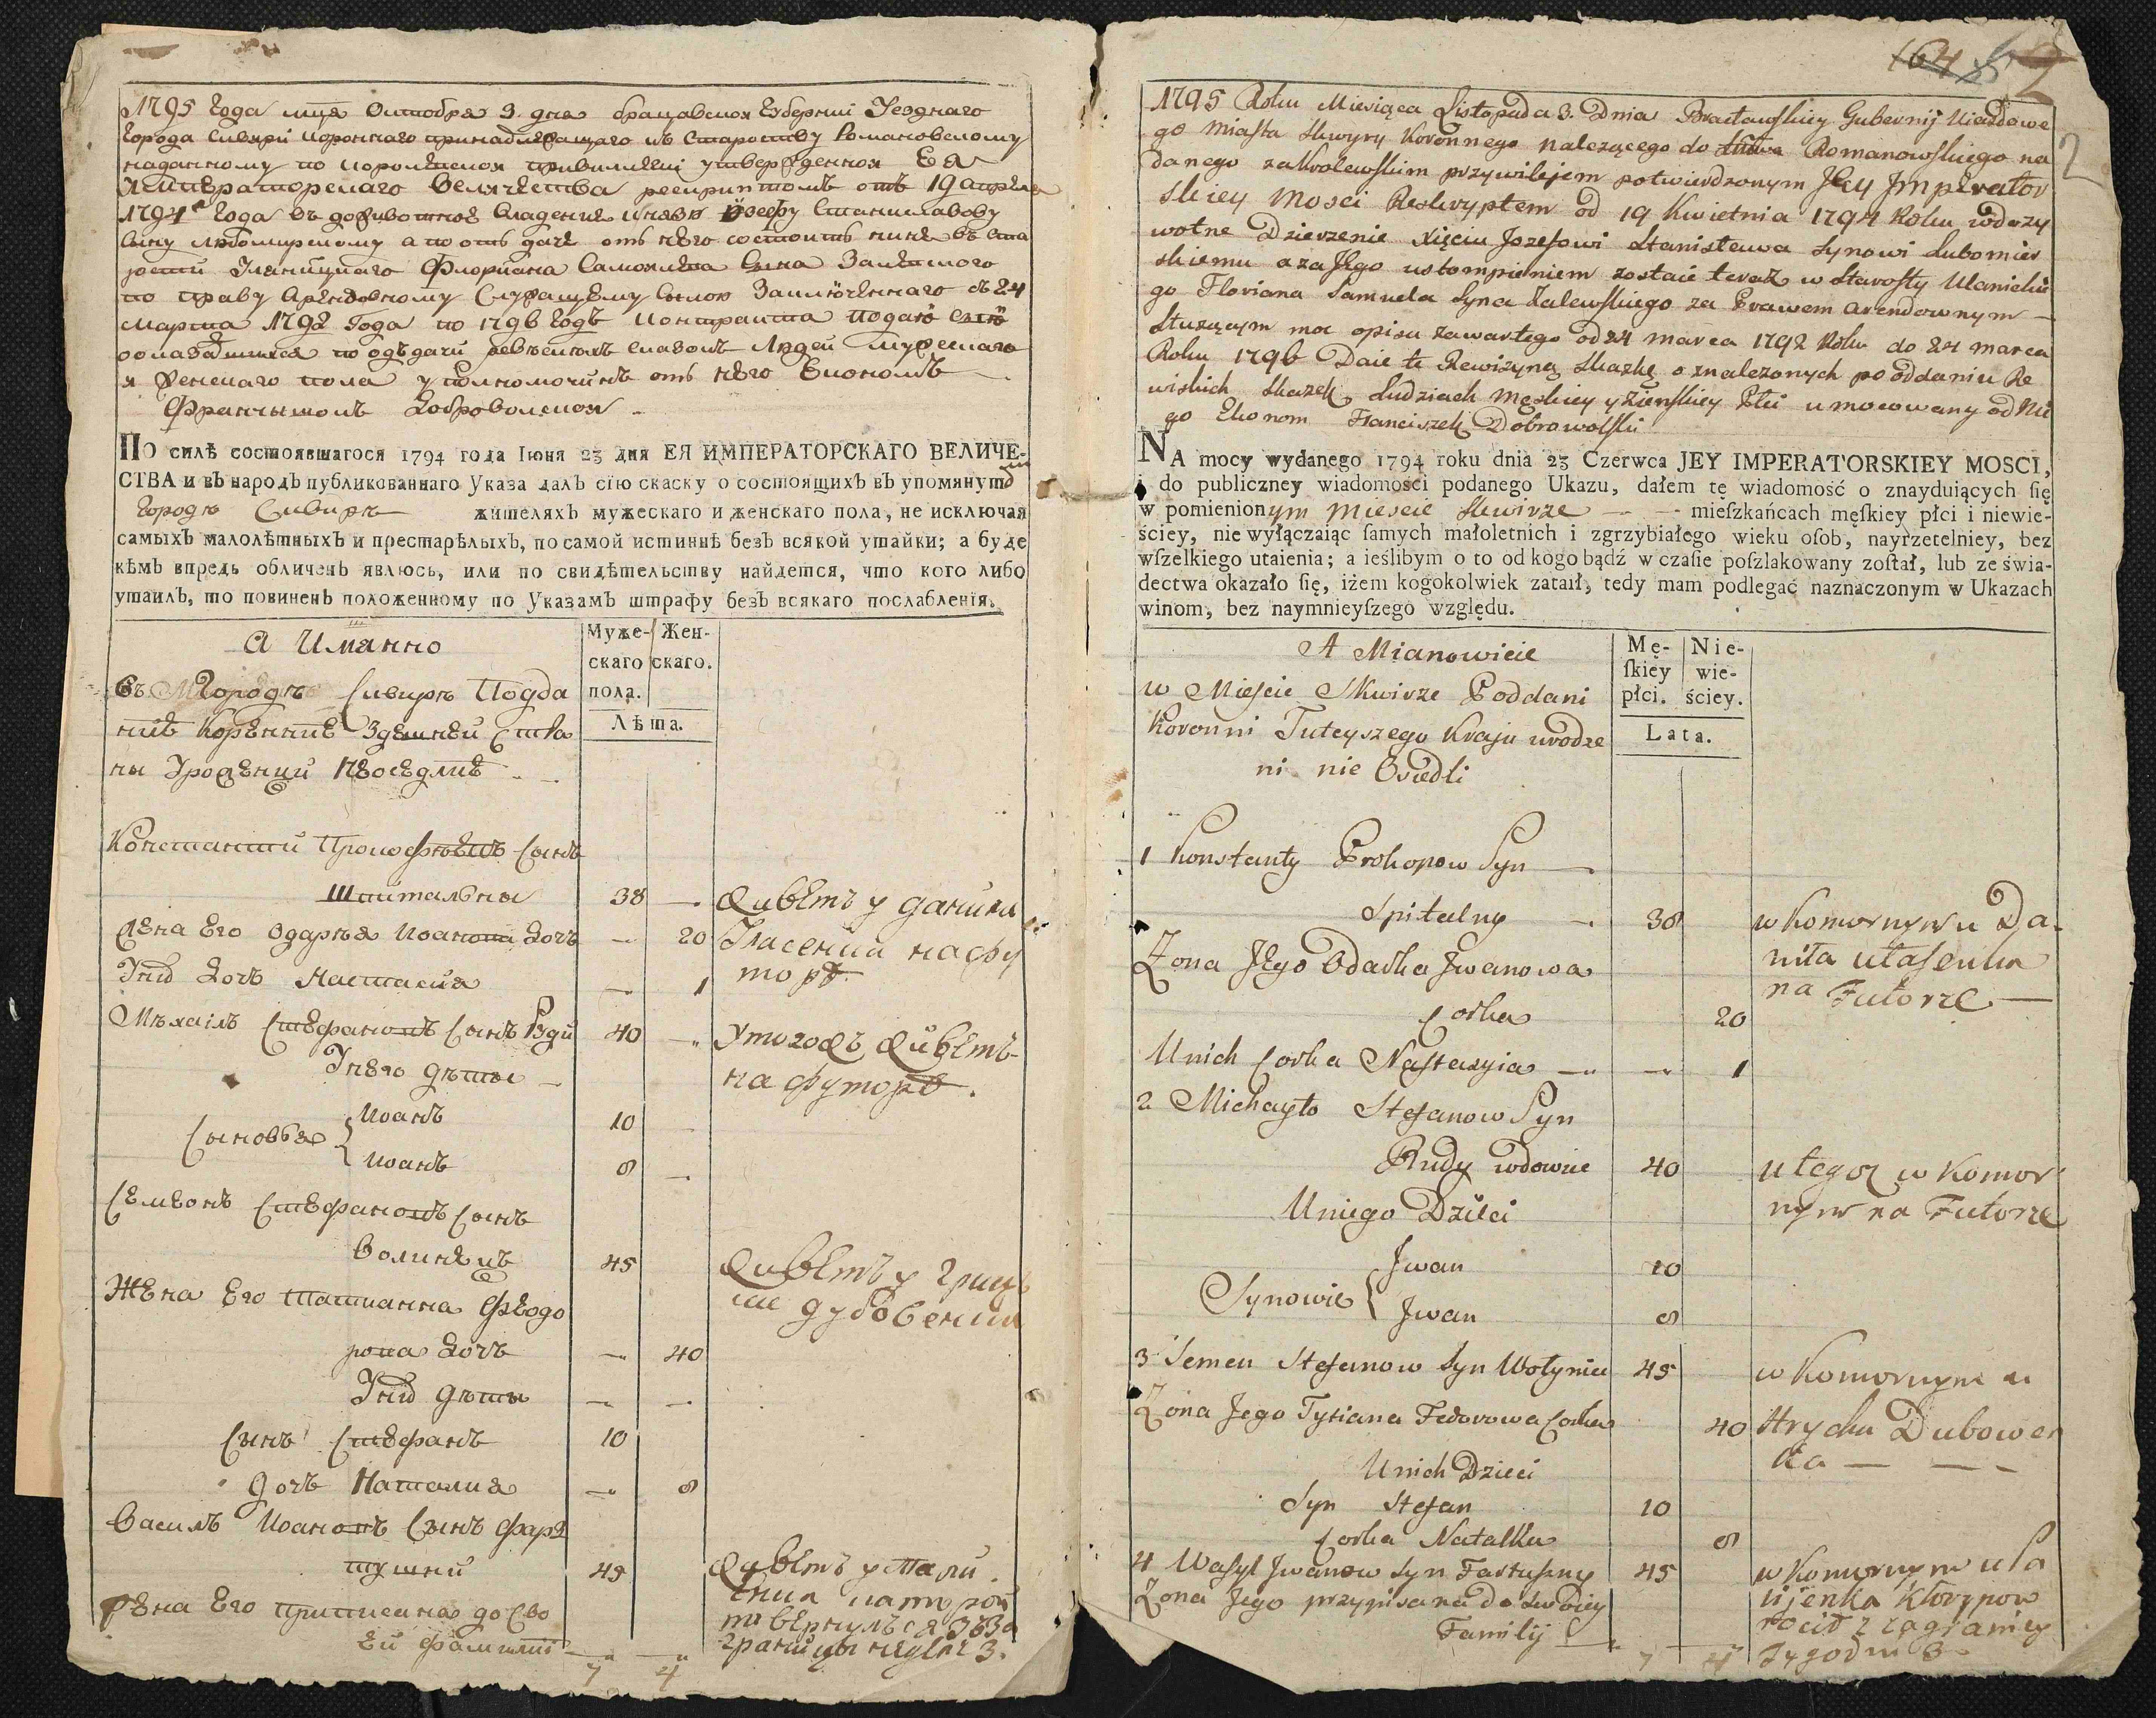 1795 Года мця Октобра 3. дня брацавской Губерніи Уезднаго
Города Сквири короннаго принадлежащаго къ Староству Романовскому
наданному по королевской привилиегіи утвержденной Ея
Императорскаго Величества рескриптомъ отъ 19 апреля
1794 Года въ доживотное владение князю Иозефу Станиславову
Сыну Любомирскому а по отъ даче отъ него состоитъ ныне въ
Уланицкаго Флориана Самоилова Сына Залевского
по праву Арендовному Служащему силою Заключеннаго съ 24
Марта 1792 Года по 1796 Годъ контракта подаю сию
о по одъдачи ревизскихъ сказокъ Людей мужескаго
и женскаго пола уполномочинъ отъ него Економъ
Францышокъ Добровольскои
По силѣ состоявшагося 1794 года Іюня 23 дня ЕЯ ИМПЕРАТОРСКАГО ВЕЛИЧЕ-
СТВА и въ народъ публикованнаго Указа далъ сію скаску о состоящихъ въ упомянутомъ
Городе Сквире жителяхъ мужескаго и женскаго пола, не исключая
самыхъ малолѣтныхъ и престарѣлыхъ, по самой истиннѣ безъ всякой утайки; а буде
кѣмъ впредь обличенъ явлюсь, или по свидѣтельству найдется, что кого либо
утаилъ, то повиненъ положенному по Указамъ штрафу безъ всякаго послабленія.
А Иманно
Муже- Жен-
скаго скаго.
пола.
Лѣта.
Въ Городе Сквире Подда
ние Коренние Здешней Сто
ны Урожении Неоседлие
Константий Прокофиевъ Сынъ
Шпитальны 38 Живетъ у данила
Жена Его Одарка Иоанова Дочъ 20 Уласенка на фу
Унихъ Дочъ Настасия 1 торе
Михаилъ Стефановъ Сынъ Рудй 40 У того жъ живетъ
Унего дети на футоре.
Сыновья { Иоанъ 10
Иоанъ 8
Семионъ Стефановъ Сынъ
Волинецъ 45 Живетъ у Гриц
Жена Его Татианна Феодо ка дубовенка
рова Дочъ 40
Унихъ дети
Сынъ Стефанъ 10
дочъ Наталия 8
Василъ Иоановъ Сынъ Фарт
тушний 45 Живетъ у Пали
Жена Его приписана до Сво енка которой
ей фамилиі 7 4 вернулъся Зъза
границы неделе 3.
164 2
2
1795 Roku Miesiąca Listopada 3. Dnia Bracławskiey Gubernij Uiazdowe
go Miasta Skwyry Koronnego należącego do Romanowskiego na
danego za Krolewskim przywilejem potwierdzonym JEy Jmperator
skiey Mosci Reskryptem od 19 Kwietnia 1794 Roku w dozy
wotne Dzierzenie Xięciu Jozefowi Stanisława Synowi Lubomier
skiemu a za Jego ustompieniem zostaie teraz w Starosty Ulanickie
go Floriana Samuela Syna Zalewskiego za Prawem arendownym
Służącym moc opisu zawartego od 24 marca 1792 Roku do 24 marca
Roku 1796 Daie te Rewizyną Skazkę o znalezonych po oddaniu Re
wiskich Skazek Ludziach męskiey y Zienskiey Płci umocowany od Nie
go Ekonom Franciszek Dobrowolski
NA mocy wydanego 1794 roku dnia 23 Czerwca JEY IMPERATORSKIEY MOSCI,
i do publiczney wiadomości podanego Ukazu, dałem tę wiadomość o znayduiących ſię
w pomienionym Miescie Skwirze mieſzkańcach męſkiey płci i niewie-
ściey, nie wyłączaiąc ſamych małoletnich i zgrzybiałego wieku oſob, nayrzetelniey, bez
wſzelkiego utaienia; a ieślibym o to od kogo bądź w czaſie poſzlakowany zoſtał, lub ze świa-
dectwa okazało ſię, iżem kogokolwiek zataił, tedy mam podlegać naznaczonym w Ukazach
winom, bez naymnieyſzego względu.
A Mianowicie
Mę- Nie-
ſkiey wie-
płci. ściey.
Lata.
w Miescie Skwirze Poddani
Koronni Tuteyszego Kraju urodze
ni nie Osiedli
1 Konstanty Prokopow Syn
Spitalny 38 w Komornym u Da-
Zona JEgo Odarka Jwanowa niła Ułasenka
Corka 20 na Futorze
Unich Corka Nastazyia 1
2 Michayło Stefanow Syn
Rudy wdowiec 40 u tegoz w Komor
Uniego Dzieci nym na Futorze
Synowie { Jwan 10
Jwan 8
3 Semen Stefanow Syn Wołyniec 45 w Komornym u
Zona Jego Tytiana Fedorowa Corka 40 Hrycka Dubowen
Unich Dzieci ka
Syn Stefan 10
Corka Natalka 8
4 Wasyl Jwanow Syn Fartuszny 45 w Komornym u Pa
Zona Jego przypisana do Swoiey lijenka ktory pow
Familij rocił z zagranicy
7 4 Tygodni 3